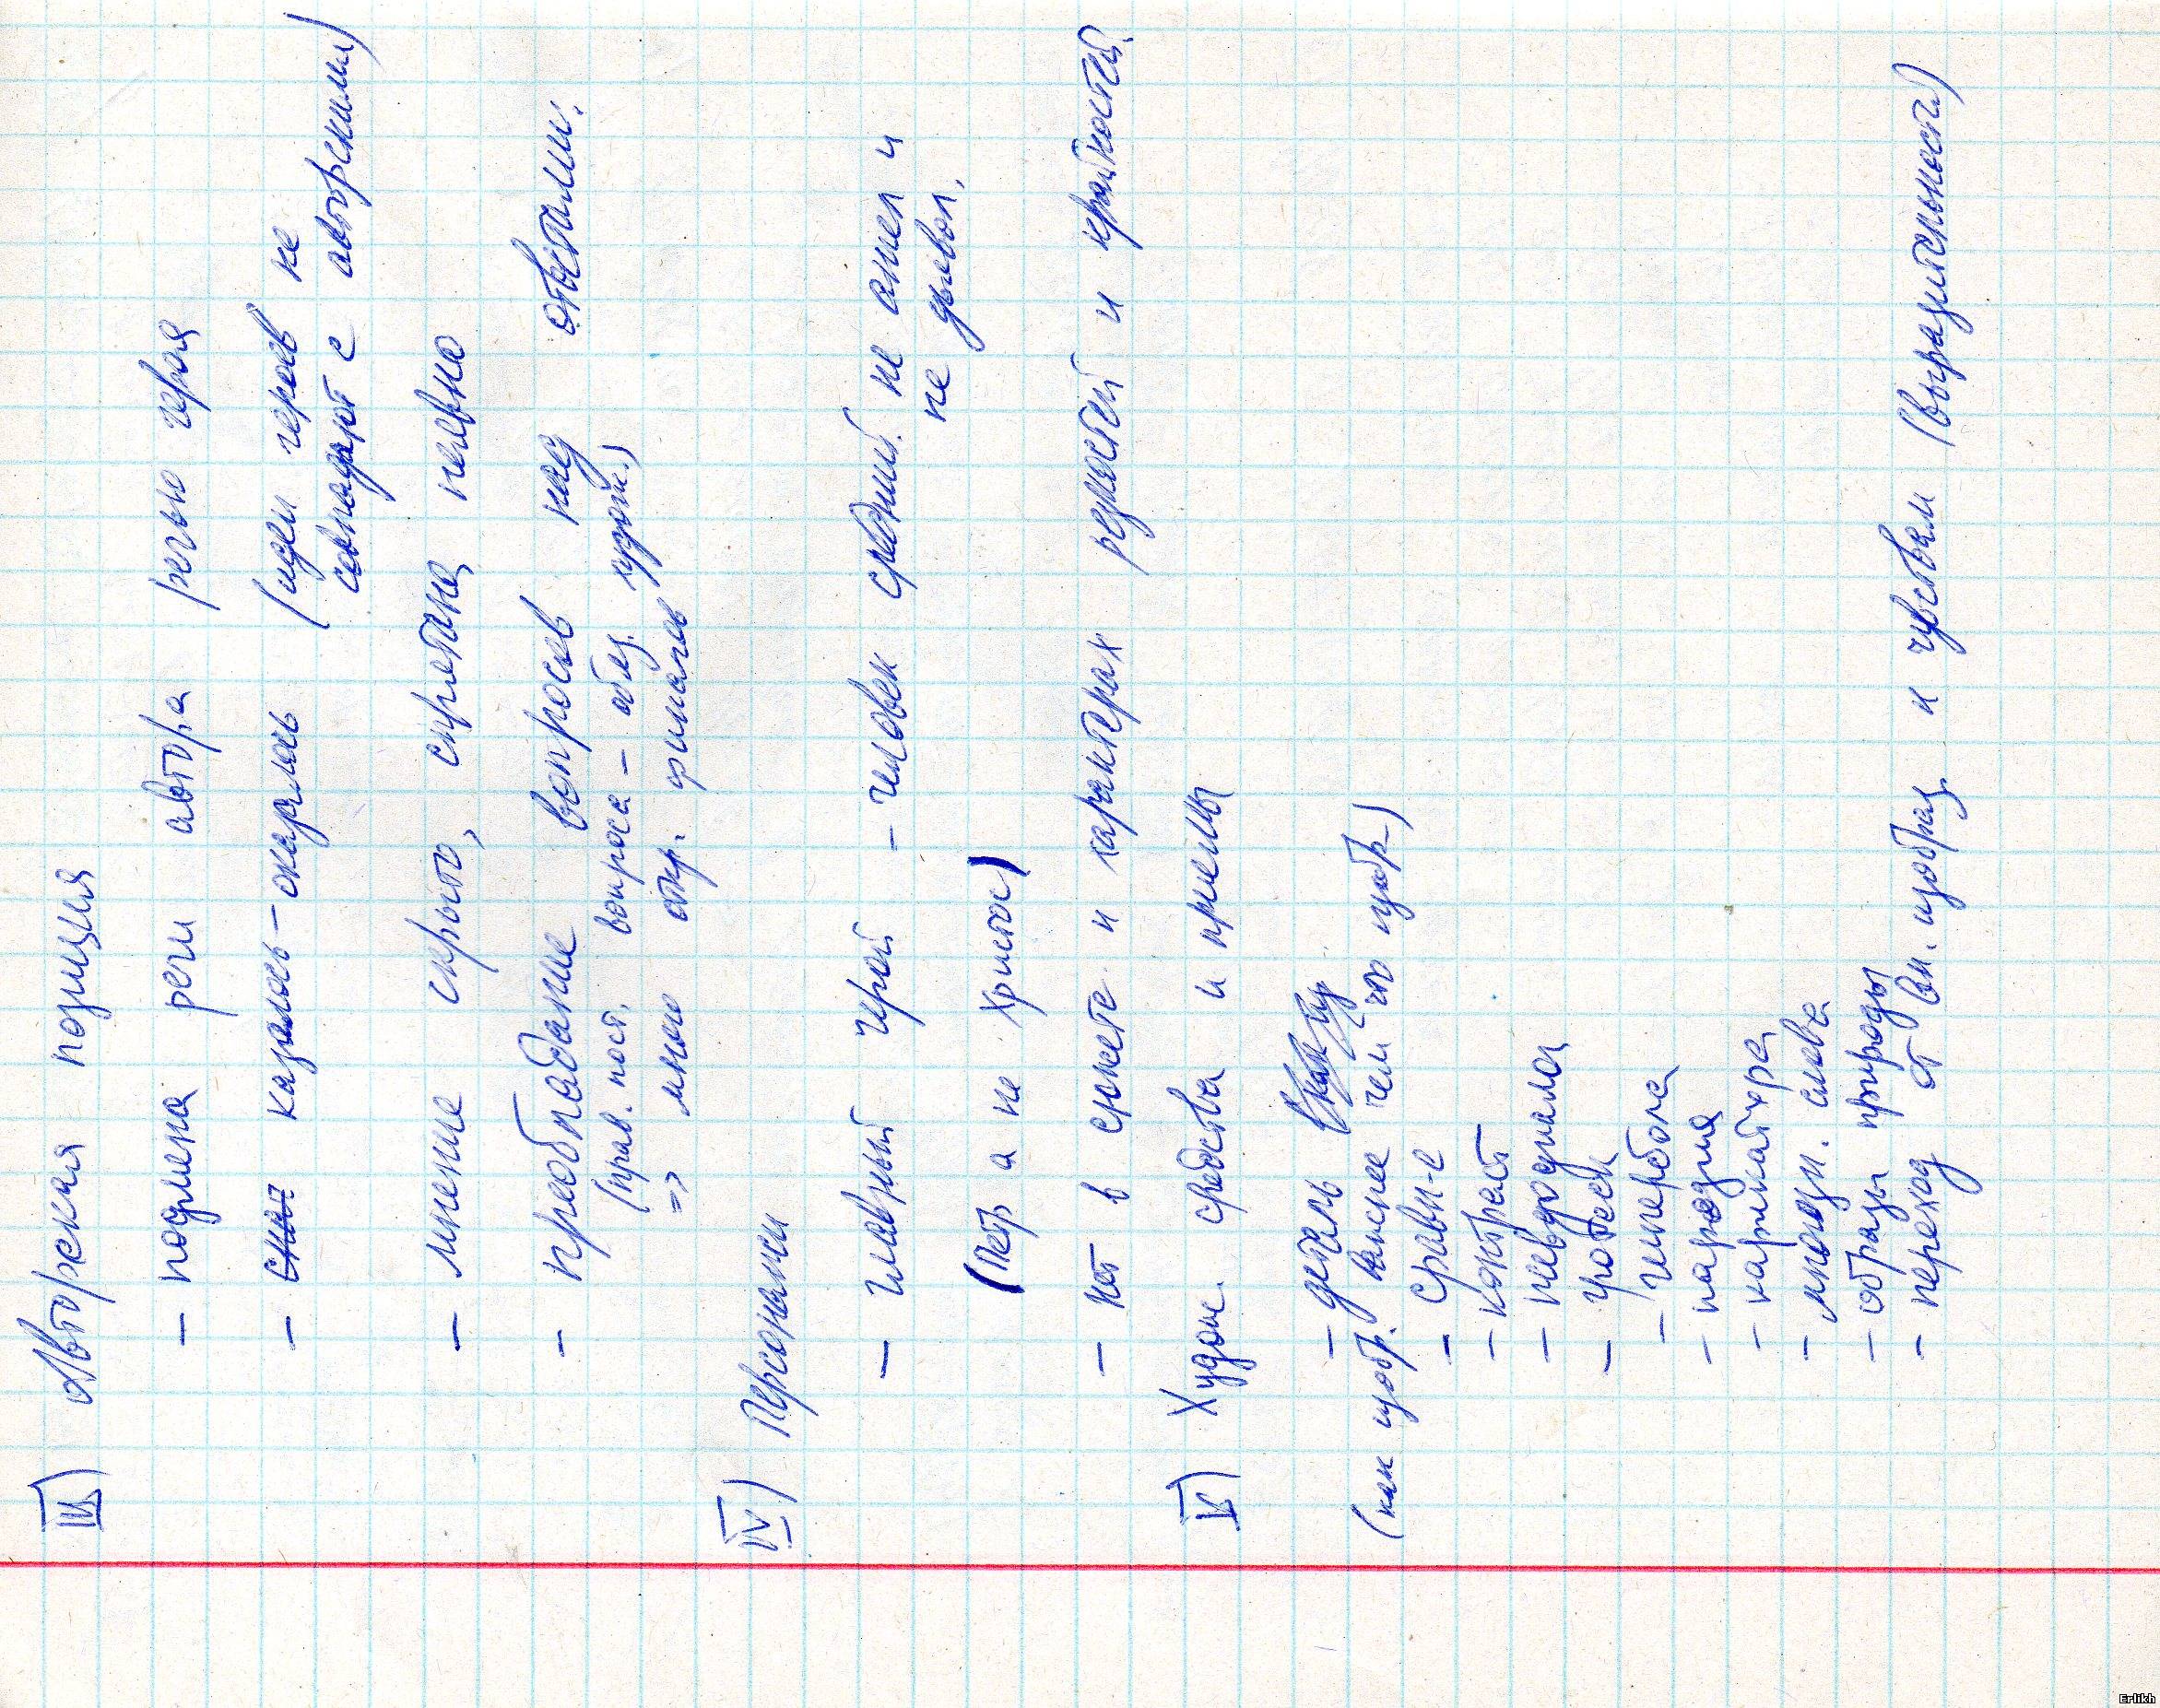 III) Авторская позиция
– подмена речи автора речью героя
– казалось – оказалось (идеи героев не
совпадают с авторскими)
– мнение скрыто, спрятано неявно
– преобладание вопросов над ответами.
(прав. пост. вопроса – обяз. худож.)
=> много откр. финалов
IV) Персонажи
– главный герой – человек средний. не ангел и
не дьявол,
(Петр а не Христос)
– нет в сюжете и характерах редкостей и крайностей.
V) Худож. средства и приемы
– деталь
(как изобр. важнее чем что изобр.)
– сравн-е
– контраст
– гротеск
– гипербола
– пародия
– карикатура
– образы природы
– переход от вн. изображ. к чувствам (выразительность)
Erlikh